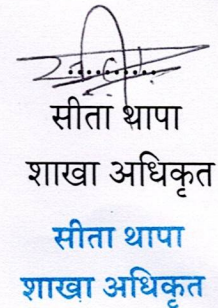 सीता थापा
शाखा अधिकृत
सीता थापा
शाखा अधिकृत